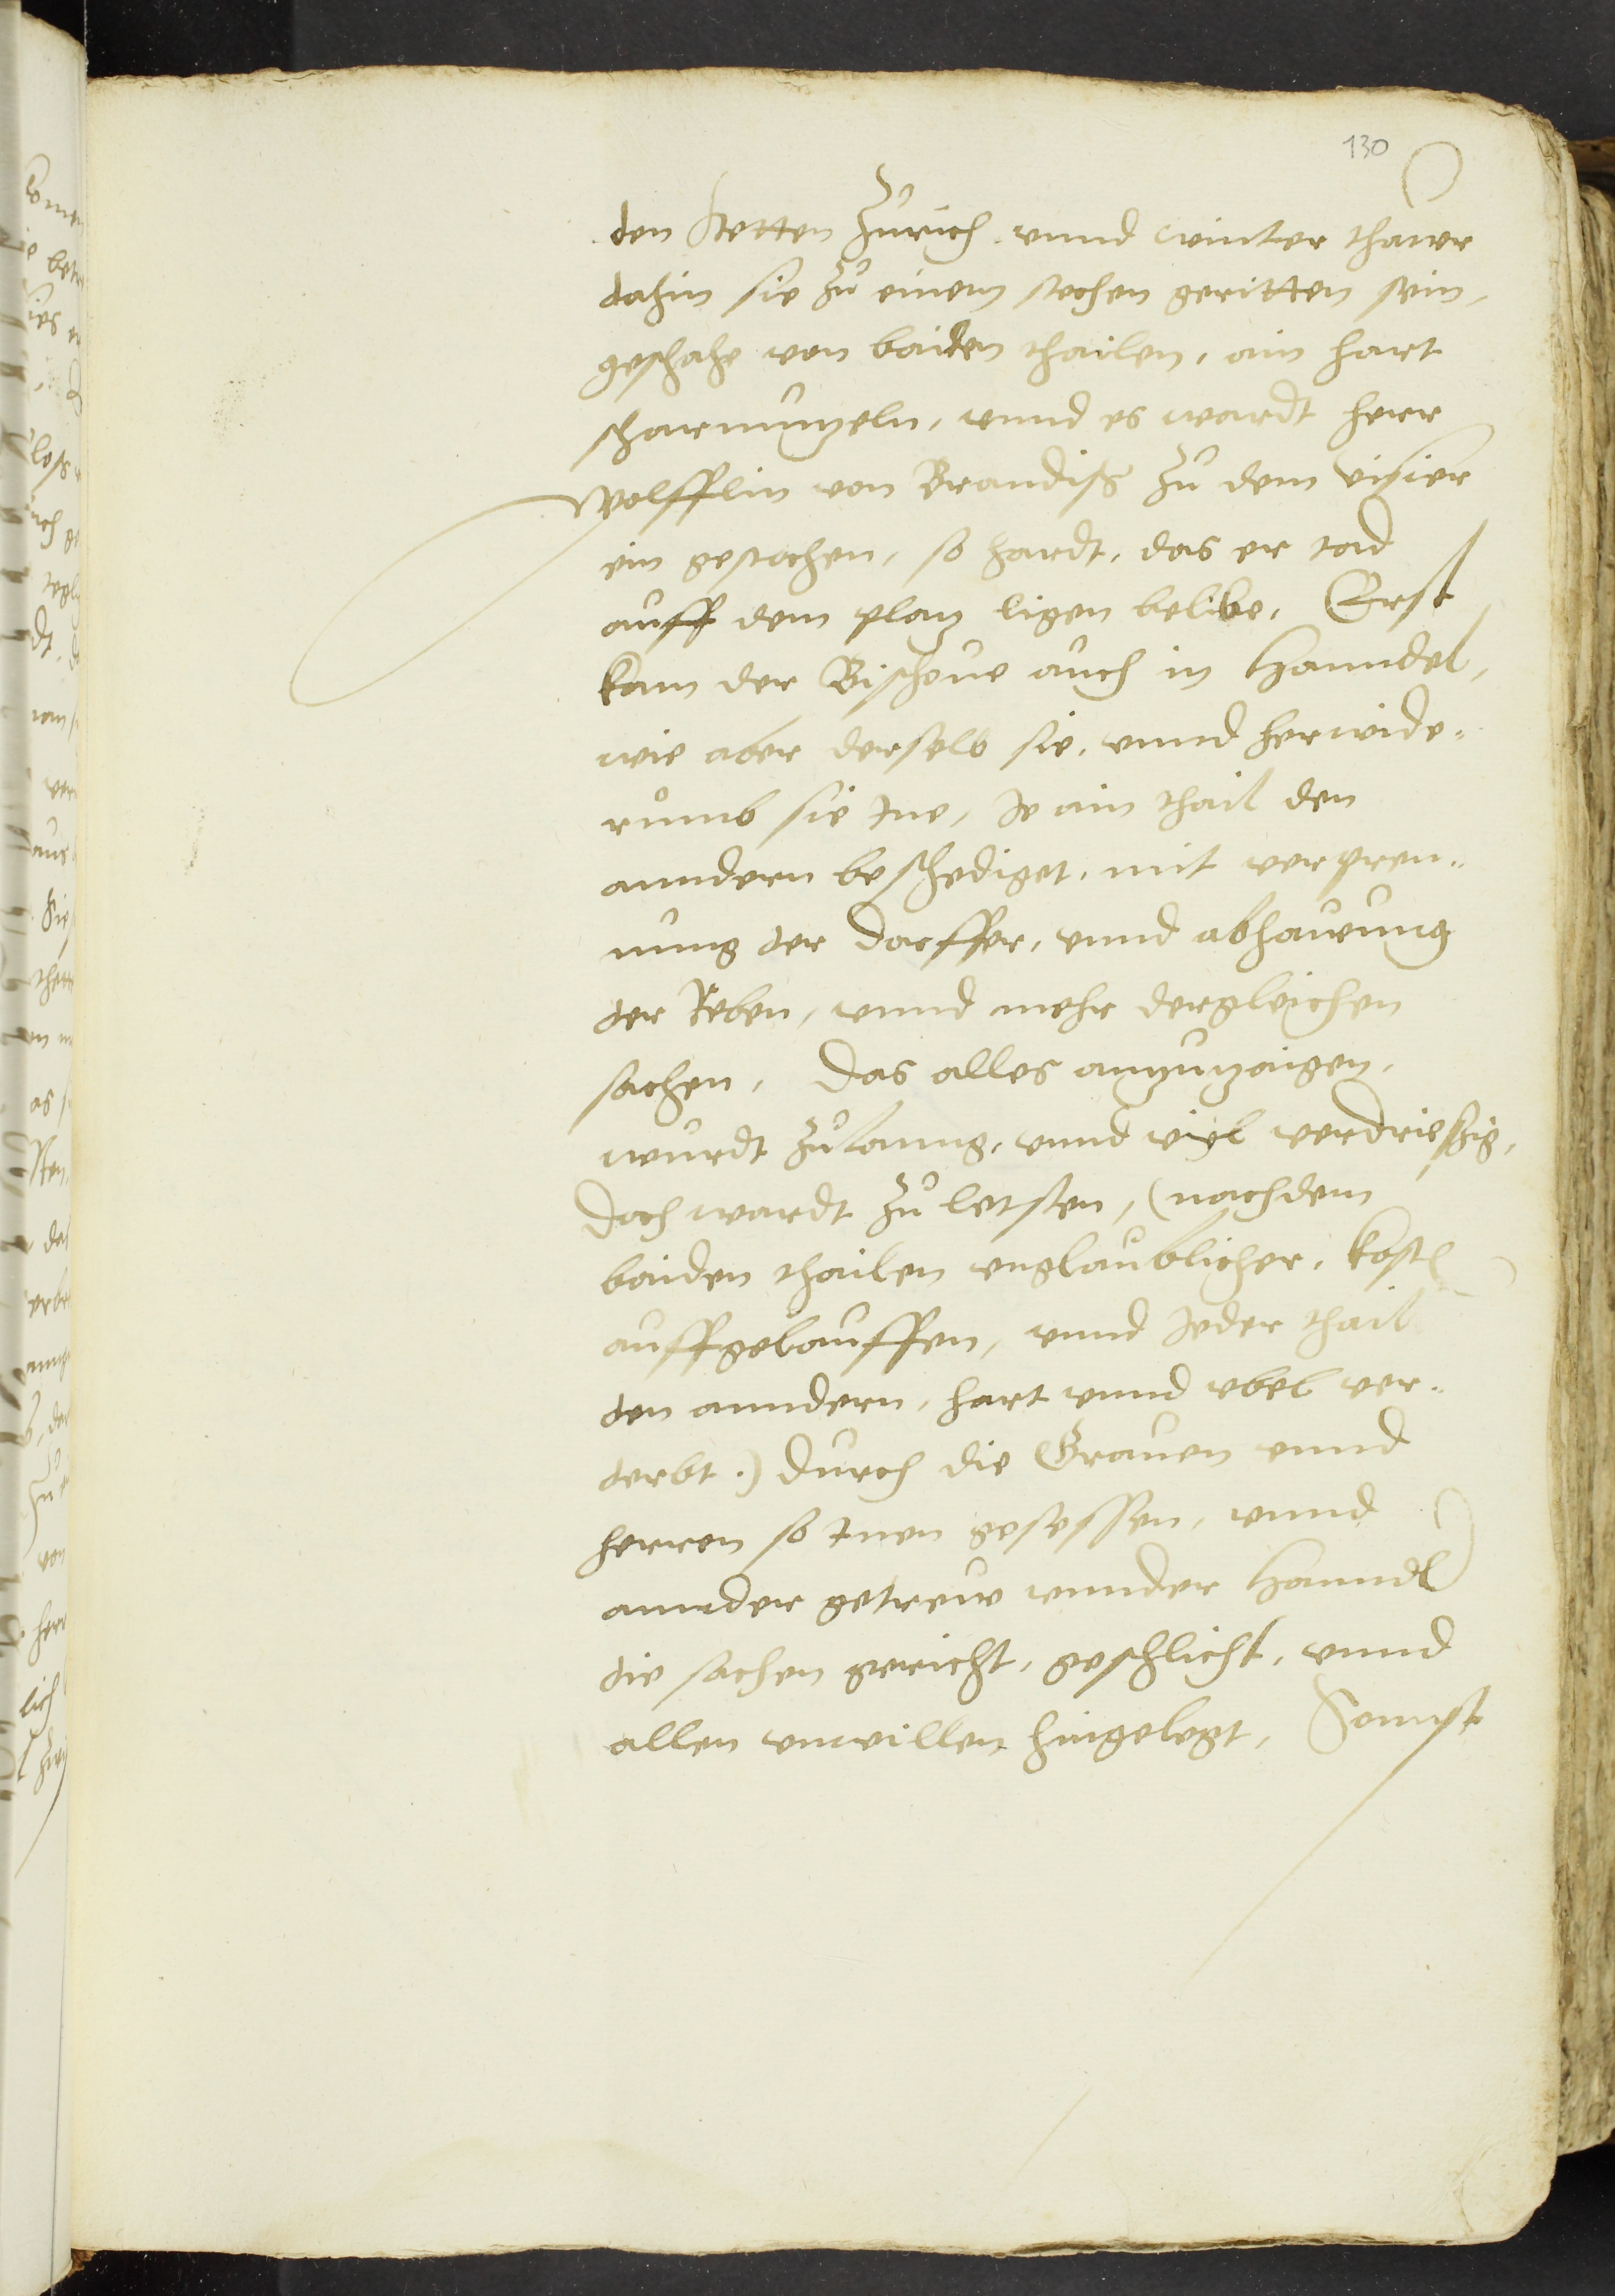 130
den stetten Zurich. vnnd winter thawr
dahin sie zů einem stechen geritten sein,
geschahe von baiden thailen, ain hart
scharmutzeln, vnnd es wardt herr
Wolfflin von Brandiß zů dem visier
ein gestochen, so hardt, das er tod
auff dem platz ligen belibe, Erst
kam der Bischoue auch in Hanndel,
wie aber derselb sie, vnnd herwide-
rumb sie Ine, Je ain thail den
anndern beschediget, mit verpren-
nung der dorffer, vnnd abhauung
der Reben, vnnd mehr dergleichen
sachen, Das alles anzuzaigen,
wurdt zů lanng, vnnd viel verdriessig,
Doch wardt zů letsten, (nachdem
baiden thailen vnglaublicher, kosten
auffgelauffen, vnnd Jeder thail
den anndern, hart vnnd vbel ver-
derbt.) Durch die Grauen vnnd
herren so Inen gesessen, vnnd
annder getrew vnnder Hanndl
die sachen gericht, geschlicht, vnnd
allen vnwillen hingelegt, Sonnst